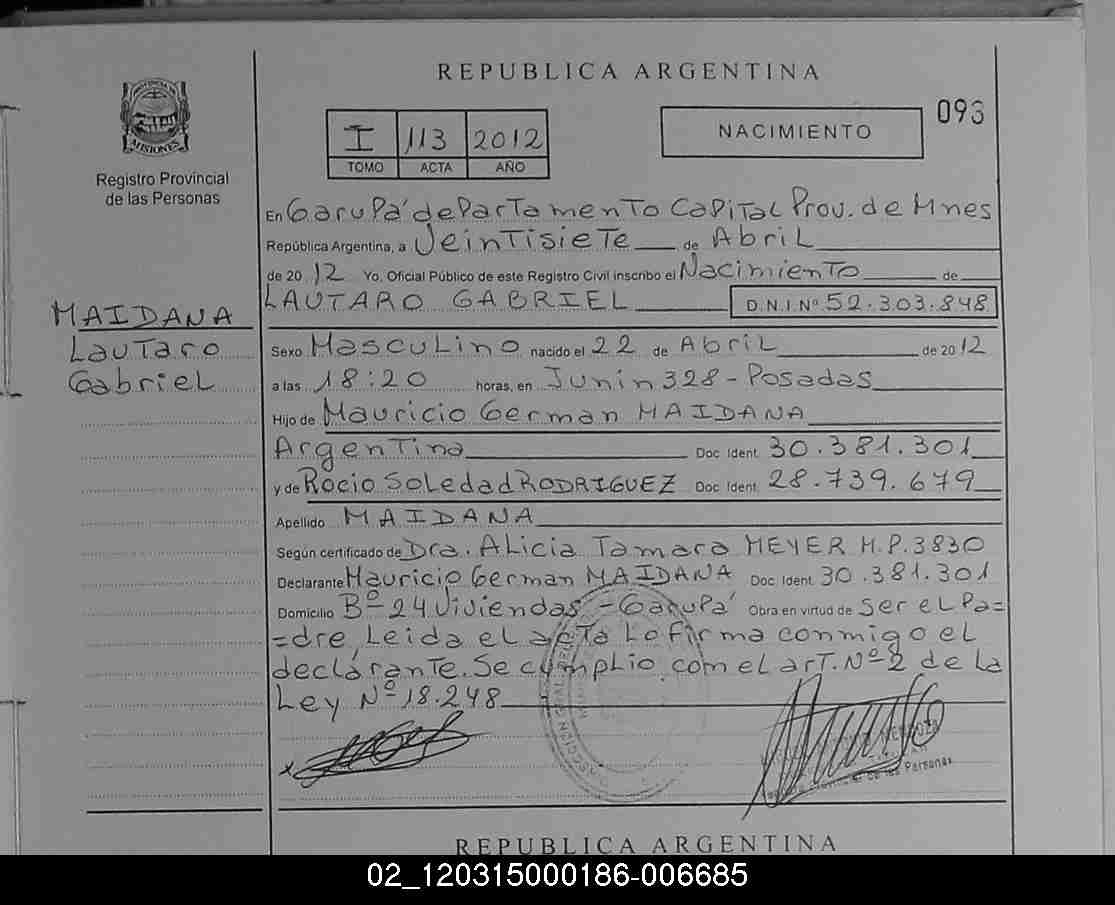 REPUBLICA ARGENTINA
093
NACIMIENTO
I 113 2012
TOMO ACTA AÑO
PROVINCIA DE
MISIONES
Registro Provincial
de las Personas
MAIDANA
Lautaro
Gabriel
En Garupá departamento Capital Prov. de Mnes
República Argentina, a Veintisiete de Abril
de 2012 Yo, Oficial Público de este Registro Civil inscribo el Nacimiento de
LAUTARO GABRIEL D.N.I.Nº 52.303.848
Sexo Masculino nacido el 22 de Abril de 2012
a las 18:20 horas, en Junin 328 - Posadas
Hijo de Mauricio German MAIDANA
Argentina Doc Ident. 30.381.301
y de Rocio Soledad RODRIGUEZ Doc Ident. 28.739.679
Apellido MAIDANA
Según certificado de Dra. Alicia Tamara MEYER M.P.3830
Declarante Mauricio German MAIDANA Doc Ident. 30.381.301
Domicilio Bº-24 Viviendas - Garupá Obra en virtud de ser el pa=
=dre, Leida el acta Lo firma conmigo el
declarante. Se cumplio com el art. Nº2 de la
Ley Nº 18.248
de las Personas
REPUBLICA ARGENTINA
02_120315000186-006685